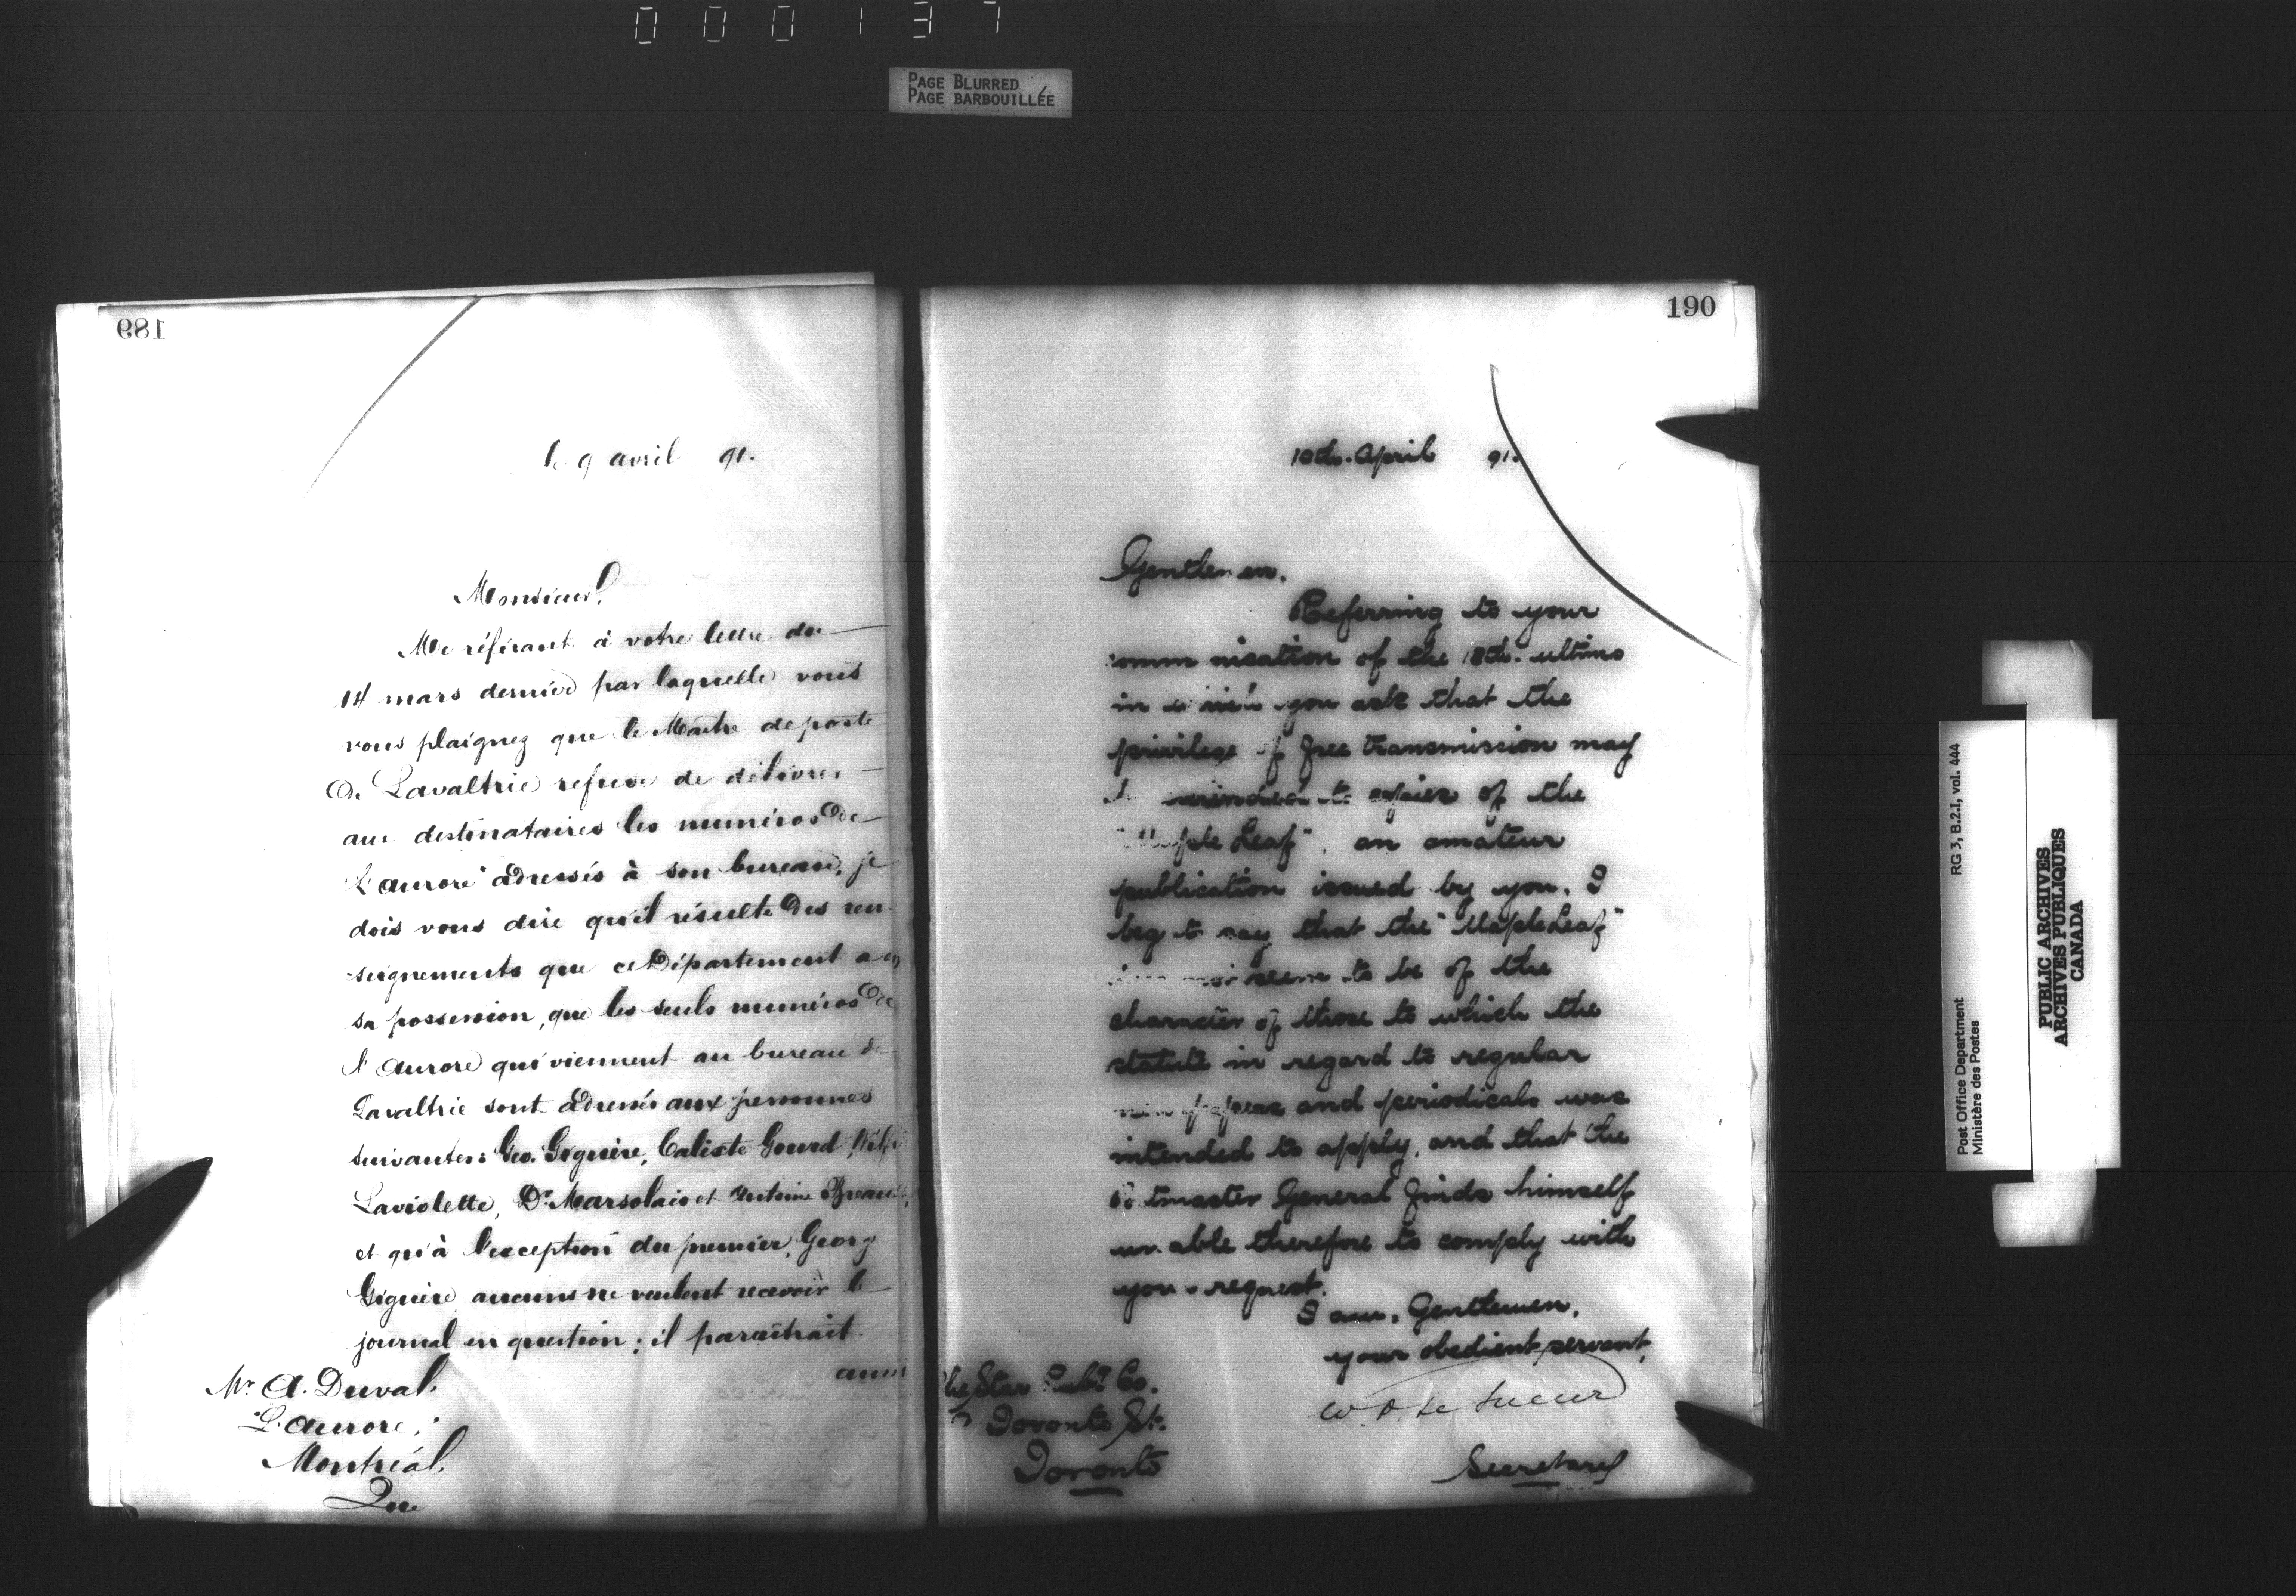 000137
PAGE BLURRED
PAGE BARBOUILLÉE
189
le 9 avril 91.
Monsieur,
Me référant à votre lettre du
14 mars dernier par laquelle vous
vous plaignez que le Maître de poste
de Lavaltrie refuse de délivrer
aux destinataires les numéros de
"L'Aurore" adressés à son bureau, je
dois vous dire qu'il résulte des ren-
seignements que ce Département a en
sa possession, que les seuls numéros de
l'Aurore qui viennent au bureau de
Lavaltrie sont adressés aux personnes
suivantes: Geo. Giguère, Calixte Gourd,
Laviolette, Dr. Marsolais et Antoine
et qu'à l'exception du premier, Georg
Giguère, aucuns ne veulent recevoir le
journal en question; il paraîtrait
aussi
Mr. A. Duval,
"L'Aurore,"
Montréal,
Que
190
10th. April 91.
Gentlemen,
Referring to your
communication of the 18th. ultimo
in which you ask that the
privilege of free transmission may
be extended to copies of the
"Maple Leaf", an amateur
publication issued by you, I
beg to say that the "Maple Leaf"
does not seem to be of the
character of those to which the
statute in regard to regular
newspapers and periodicals was
intended to apply, and that the
Postmaster General finds himself
unable therefore to comply with
your request.
I am, Gentlemen,
your obedient servant,
W. D. Le Sueur
Secretary
The Star Pubg Co.
Toronto St.
Toronto
Post Office Department
Ministère des Postes
RG 3, B.2.I, vol. 444
PUBLIC ARCHIVES
ARCHIVES PUBLIQUES
CANADA